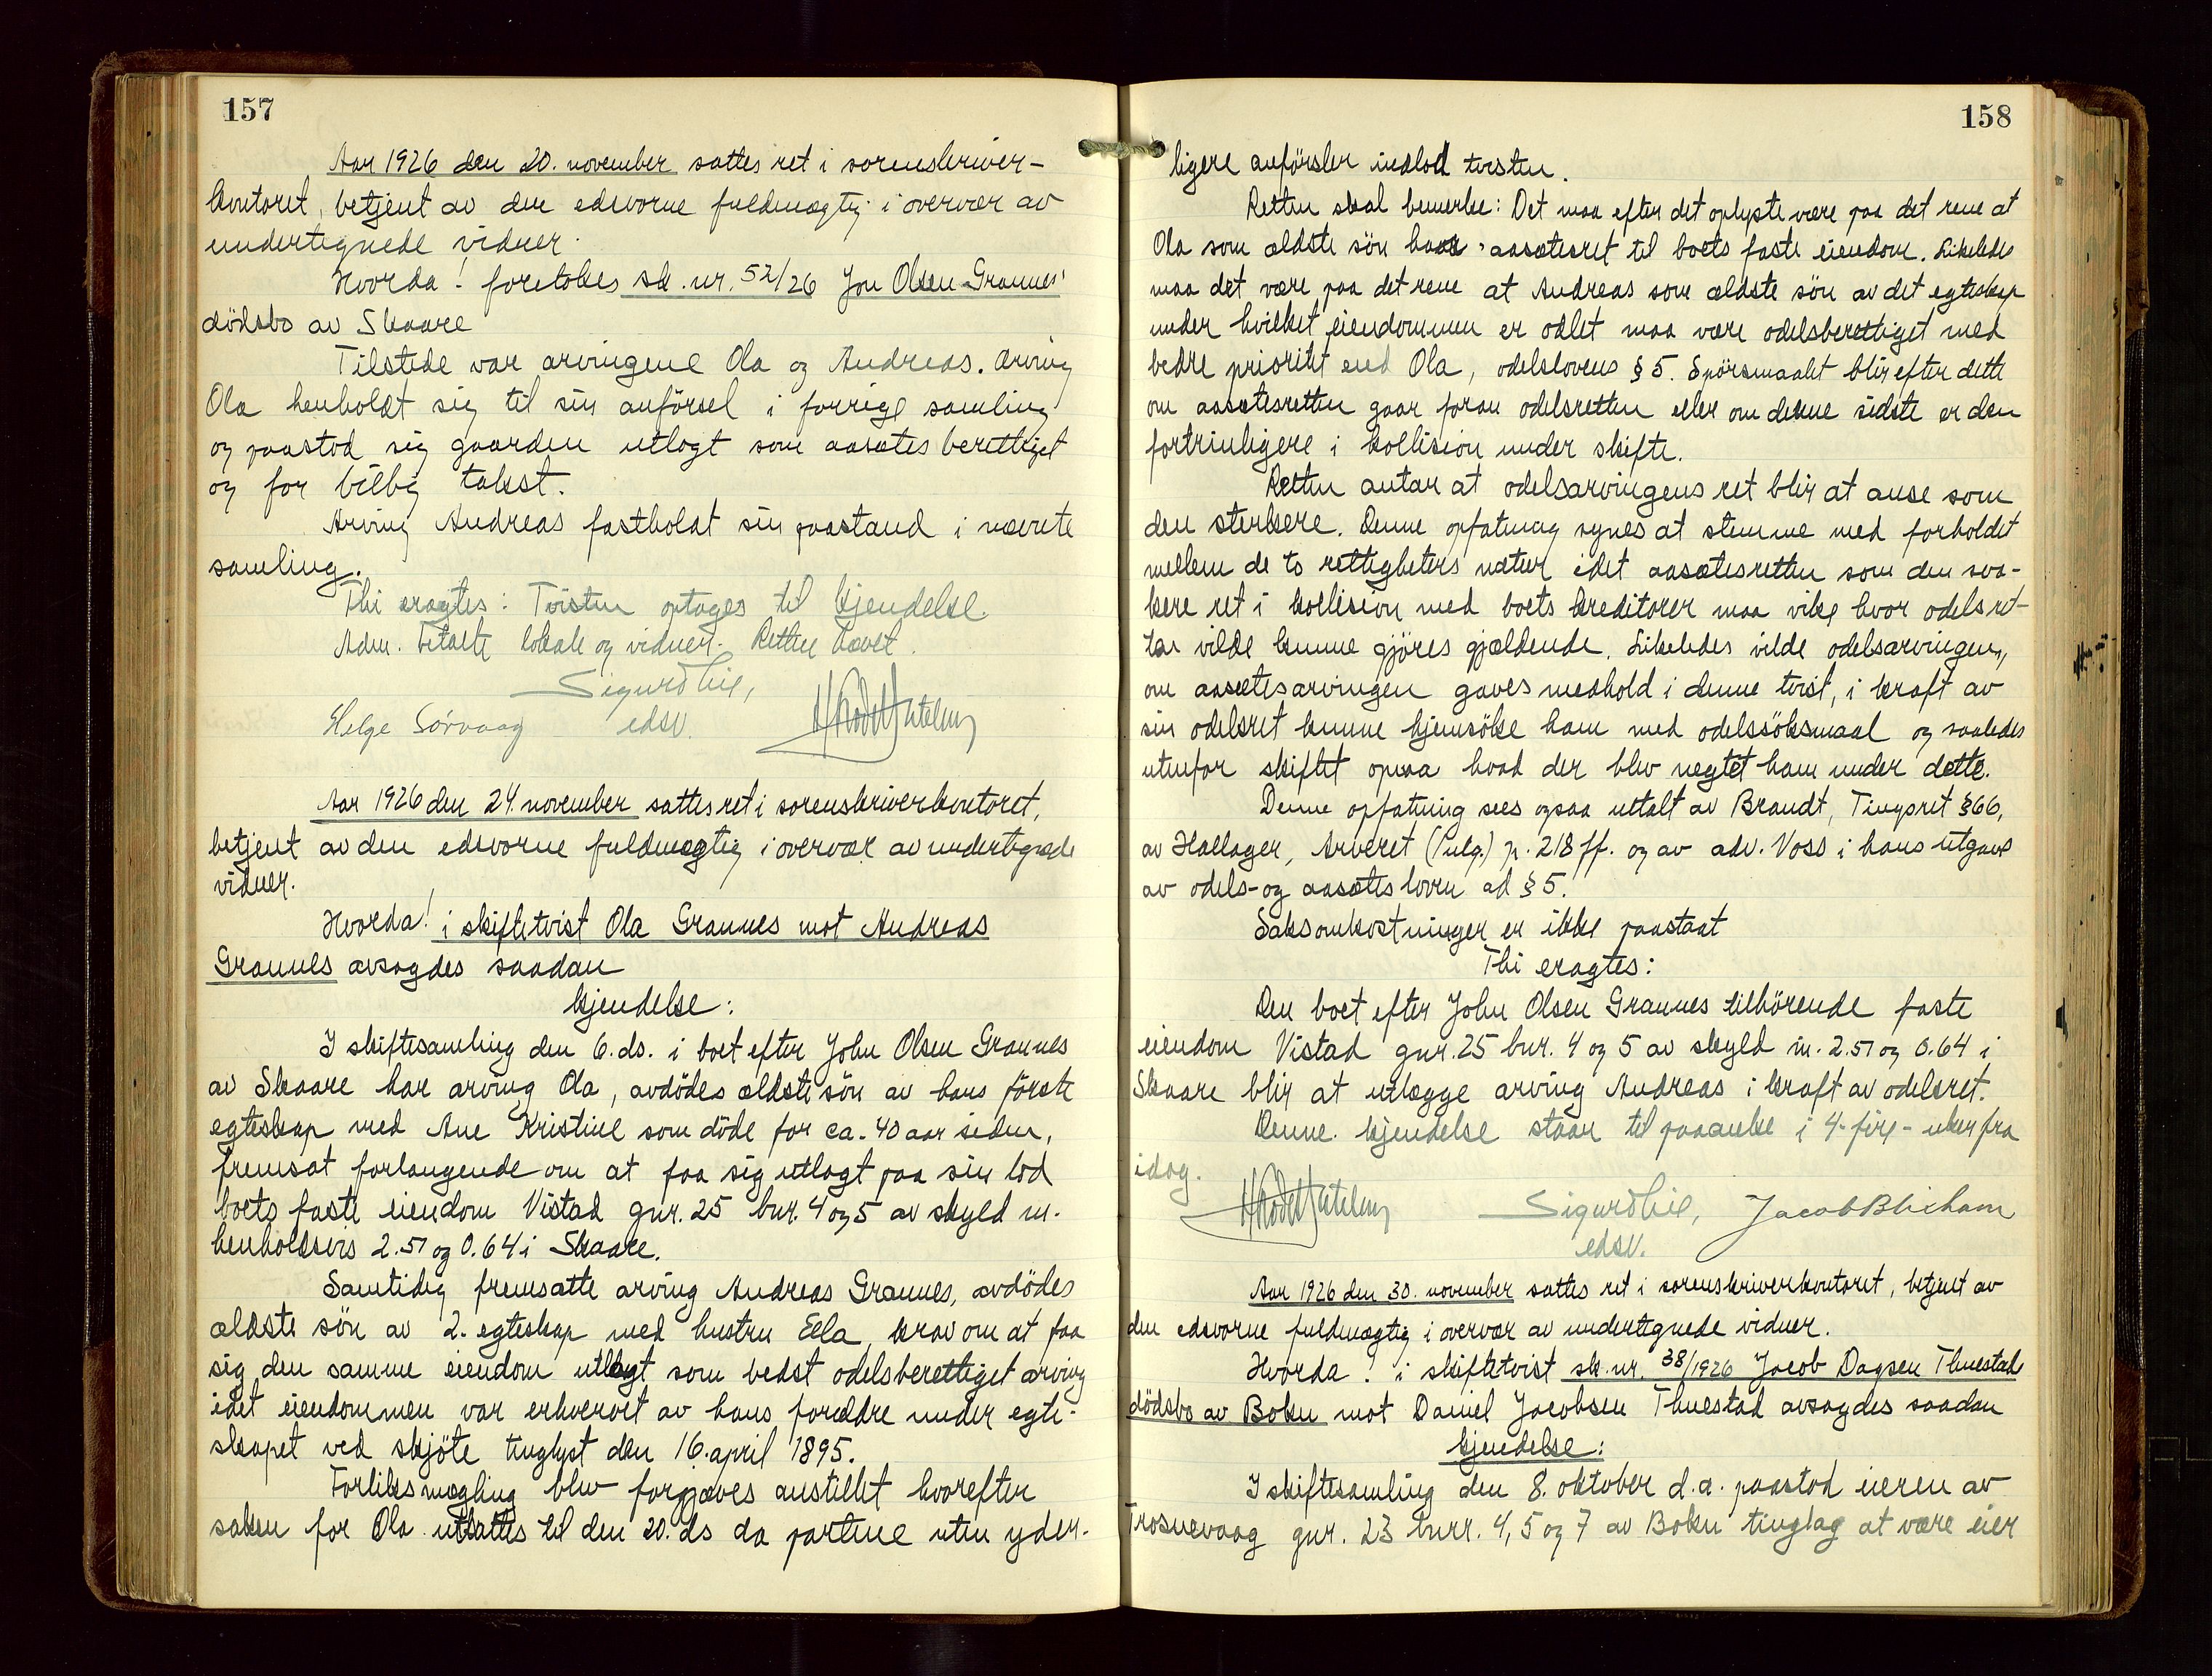 157
Aar 1926 den 20. november sattes ret i sorenskriver-
kontoret, betjent av den edsvorne fuldmægtig i overvær av
undertegnede vidner.
Hvorda! foretokes sk. nr. 52/26 Jon Olsen Grannes'
dödsbo av Skaare
Tilstede var arvingene Ola og Andreas. Arving
Ola henholdt sig til sin anförsel i forrige samling
og paastod sig gaarden utlagt som aasætesberettiget
og for billig takst.
Arving Andreas fastholdt sin paastand i nævnte
samling.
Thi eragtes: Tvisten optages til kjendelse.
Adm. betalte lokale og vidner. Retten hævet.
Sigurd Lie,
Helge Sörvaag edsv.
Aar 1926 den 24. november sattes ret i sorenskriverkontoret,
betjent av den edsvorne fuldmægtig i overvær av undertegnede
vidner.
Hvorda! i skiftetvist Ola Grannes mot Andreas
Grannes avsagdes saadan
kjendelse:
I skiftesamling den 6. ds. i boet efter John Olsen Grannes
av Skaare har arving Ola, avdödes ældste sön av hans förste
egteskap med Ane Kristine som döde for ca. 40 aar siden,
fremsat forlangende om at faa sig utlagt paa sin lod
boets faste eiendom Vistad gnr. 25 bnr. 4 og 5 av skyld m.
henholdsvis 2.51 og 0.64 i Skaare.
Samtidig fremsatte arving Andreas Grannes, avdödes
ældste sön av 2. egteskap med hustru Ella, krav om at faa
sig den samme eiendom utlagt som bedst odelsberettiget arving
idet eiendommen var erhvervet av hans forældre under egte-
skapet ved skjöte tinglyst den 16. april 1895.
Forliksmægling blev forgjæves anstillet hvorefter
saken for Ola utsattes til den 20. ds da partene uten yder-
158
ligere anförsler indlod tvisten.
Retten skal bemerke: Det maa efter det oplyste være paa det rene at
Ola som ældste sön har aasætesret til boets faste eiendom. Likeledes
maa det være paa det rene at Andreas som ældste sön av det egteskap
under hvilket eiendommen er odlet maa være odelsberettiget med
bedre prioritet end Ola, odelslovens § 5. Spörsmaalet blir efter dette
om aasætesretten gaar foran odelsretten eller om denne sidste er den
fortrinligere i kollision under skifte.
Retten antar at odelsarvingens ret blir at anse som
den sterkere. Denne opfatning synes at stemme med forholdet
mellem de to rettigheters natur idet aasætesretten som den sva-
kere ret i kollision med boets kreditorer maa vike hvor odelsret-
ten vilde kunne gjöres gjældende. Likeledes vilde odelsarvingen,
om aasætesarvingen gaves medhold i denne tvist, i kraft av
sin odelsret kunne hjemsöke ham med odelssöksmaal og saaledes
utenfor skiftet opnaa hvad der blev negtet ham under dette.
Denne opfatning sees ogsaa uttalt av Brandt, Tingsret § 66,
av Hallager, Arveret (1 utg.) p. 218 ff. og av adv. Voss i hans utgave
av odels- og aasætesloven ad § 5.
Saksomkostninger er ikke paastaat
Thi eragtes:
Den boet efter John Olsen Grannes tilhörende faste
eiendom Vistad gnr. 25 bnr. 4 og 5 av skyld m. 2.51 og 0.64 i
Skaare blir at utlægge arving Andreas i kraft av odelsret.
Denne kjendelse staar til paaanke i 4-fire-uker fra
idag.
Sigurd Lie, Jacob Blixhavn
edsv.
Aar 1926 den 30. november sattes ret i sorenskriverkontoret, betjent av
den edsvorne fuldmægtig i overvær av undertegnede vidner.
Hvorda! i skiftetvist sk. nr. 38/1926 Jacob Dagsen Thuestads
dödsbo av Bokn mot Daniel Jacobsen Thuestad avsagdes saadan
kjendelse:
I skiftesamling den 8. oktober d.a. paastod eieren av
Trosnevaag gnr. 23 bnr. 4, 5 og 7 av Bokn tinglag at være eier